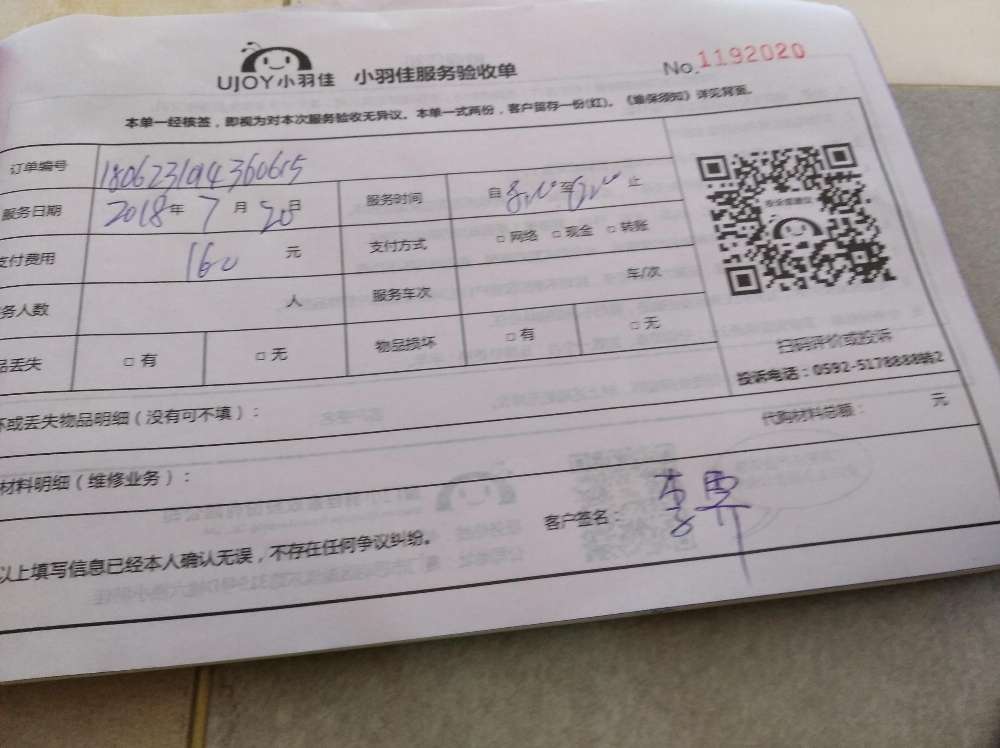 UJOY小羽佳 小羽佳服务验收单 No.1192020
本单一经核签，即视为对本次服务验收无异议。本单一式两份，客户留存一份(红)。《维保须知》详见背面。
订单编号 180623194360615
服务日期 2018年7月20日 服务时间 自 至 止
支付费用 160 元 支付方式 □网络 □现金 □转账
务人数 人 服务车次 车/次
品丢失 □有 □无 物品损坏 □有 □无
扫码评价或投诉
投诉电话：0592-5178888转2
坏或丢失物品明细（没有可不填）：
代购材料总额： 元
材料明细（维修业务）：
客户签名：
以上填写信息已经本人确认无误，不存在任何争议纠纷。